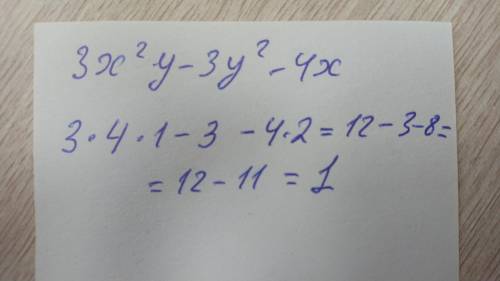 3x²y-3y²-4x
3·4·1-3 -4·2=12-3-8=
=12-11=1